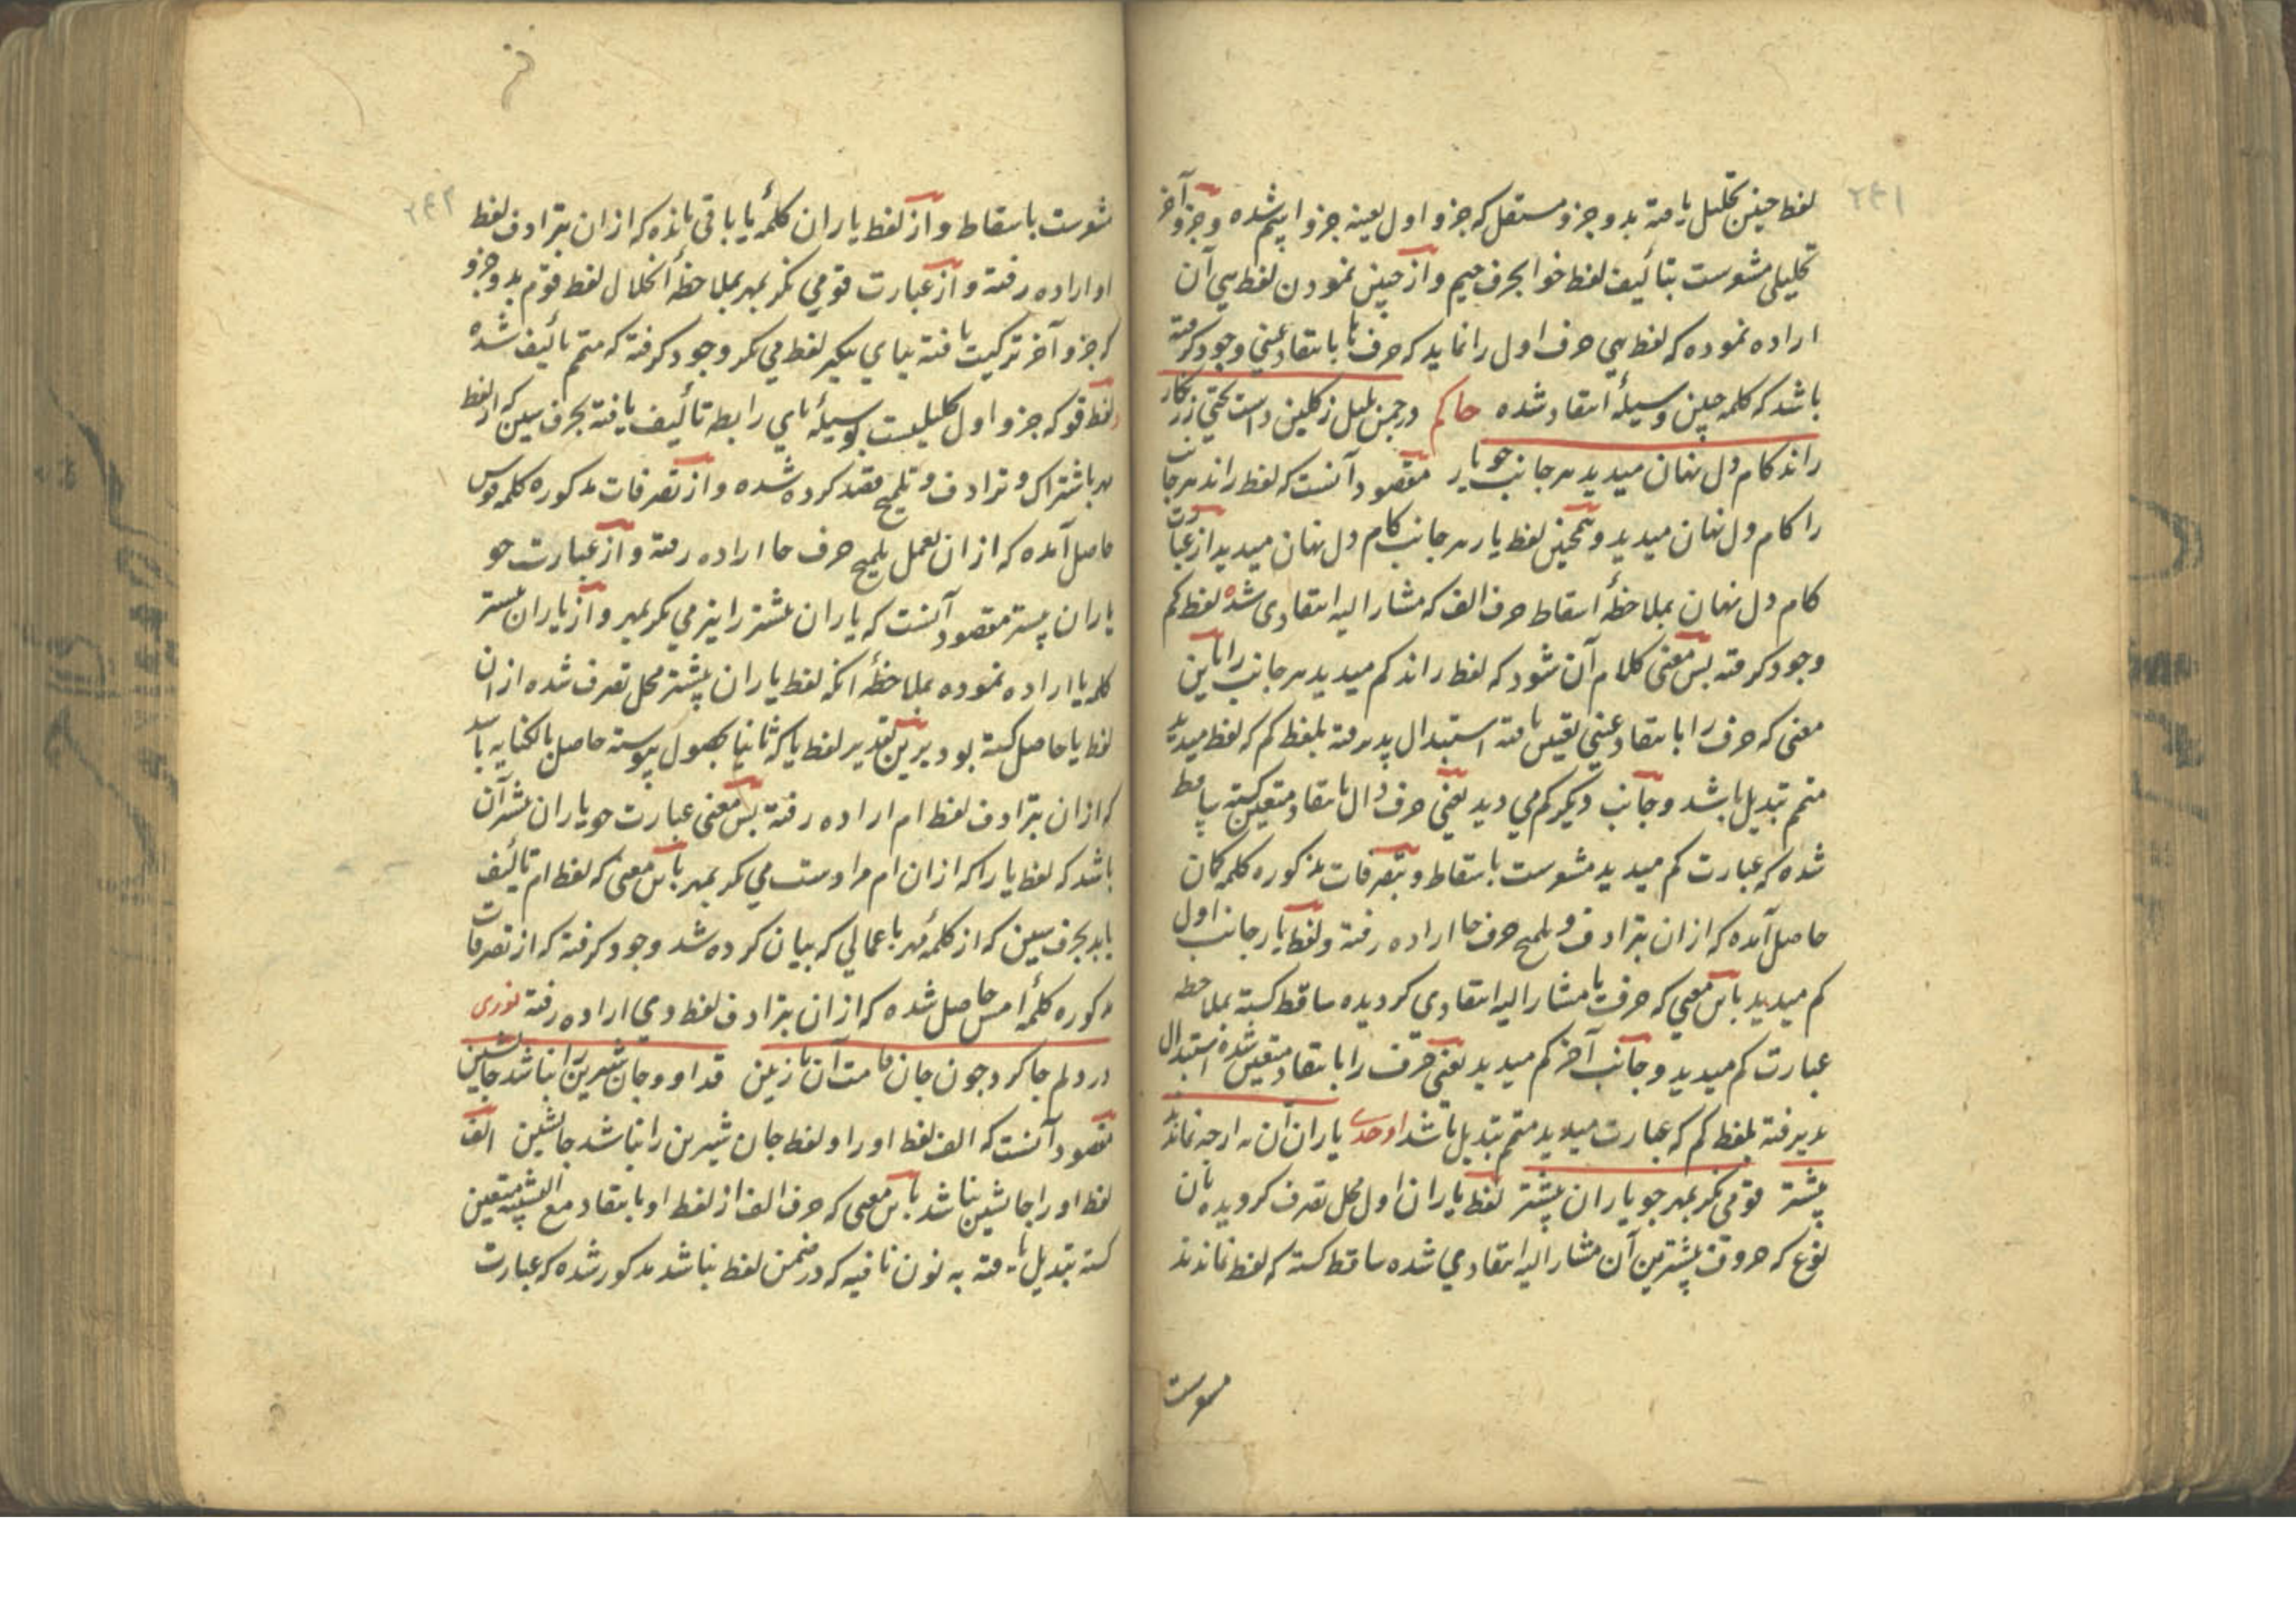 ۲۴۱
لفظ چنین تحلیل یافته بدو جزو مستقل که جزو اول بعینه جزو اسم شده و جزو آخر
تحلیلی مشوست بتألیف لفظ خوا بحرف جیم و از چنین نمودن لفظ پی آن
اراده نموده که لفظ پی حرف اول را نماید که حرف با بانتقاد عینی وجود گرفته
باشد که کلمه چنین وسیلهٔ انتقاد شده حاکم در چمن بلبل ز گلبن داشت
راند کام دل نهان میدید هر جانب جو یار مقصود آنست که لفظ راند هر جانب
را کام دل نهان میدید و همچنین لفظ یار هر جانب کام دل نهان میدید از عبارت
کام دل نهان بملاحظهٔ اسقاط حرف الف که مشار الیه انتقادی شده لفظ کم
وجود گرفته پس معنی کلام آن شود که لفظ راند کم میدید هر جانب را باین
معنی که حرف را بانتقاد عینی تعیین یافته استبدال پذیرفته بلفظ کم که لفظ میدید
متمم تبدیل باشد و جانب دیگر کم می دید یعنی حرف دال بانتقاد متعین گشته ساقط
شده که عبارت کم میدید مشوست باسقاط و بتصرفات مذکوره کلمه کان
حاصل آمده که از ان بترادف و تلمیح حرف حا اراده رفته و لفظ یار جانب اول
کم میدید باین معنی که حرف یا مشار الیه انتقادی گردیده ساقط گشته بملاحظه
عبارت کم میدید و جانب آخر کم میدید یعنی حرف را بانتقاد متعین شده استبدال
پذیرفته بلفظ کم که عبارت میدید متمم تبدیل باشد اوحدی یاران ان نه ارچه نماندند
پیشتر قومی نگر بمهر جو یاران پیشتر لفظ یاران اول محل تصرف گردیده بان
نوع که حروف پیشترین آن مشار الیه انتقادی شده ساقط گشته که لفظ نماندند
مشوست
۲۴۲
مشوست باسقاط و از لفظ یاران کلمهٔ یا باقی مانده که از ان بترادف لفظ
او اراده رفته و از عبارت قومی نگر بمهر بملاحظهٔ انحلال لفظ قوم بدو جزو
که جزو آخر ترکیب یافته بیای تنکیر لفظ می نگر وجود گرفته که متمم تألیف شده
لفظ قو که جزو اول تحلیلیست بوسیلهٔ بای رابطه تألیف یافته بحرف سین که از لفظ
مهر باشتراک و ترادف و تلمیح قصد کرده شده و از تصرفات مذکوره کلمه قوس
حاصل آمده که از ان بعمل تلمیح حرف حا اراده رفته و از عبارت جو
یاران پیشتر مقصود آنست که یاران پیشتر را نیز می نگر بمهر و از یاران پیشتر
کلمه یا اراده نموده بملاحظهٔ آنکه لفظ یاران پیشتر محل تصرف شده از ان
لفظ یا حاصل گشته بود برین تقدیر لفظ یا که ثانیا بحصول پیوسته حاصل بالکنایه باشد
که از ان بترادف لفظ ام اراده رفته پس معنی عبارت جو یاران پیشتر آن
باشد که لفظ یا را که از ان ام مرادست می نگر بمهر باین معنی که لفظ ام تألیف
یابد بحرف سین که از کلمهٔ مهر باعمالی که بیان کرده شد وجود گرفته که از تصرفات
مذکوره کلمهٔ امس حاصل شده که از ان بترادف لفظ دی اراده رفته نوری
در دلم جا کرد جون جان قامت آن نازنین قد او و جان شیرین را نباشد جانشین
مقصود آنست که الف لفظ او را و لفظ جان شیرین را نباشد جانشین الف
لفظ او را جانشین نباشد باین معنی که حرف الف از لفظ او بانتقاد مع التشبیه متعین
گشته تبدیل یافته به نون نافیه که در ضمن لفظ نباشد مذکور شده که عبارت